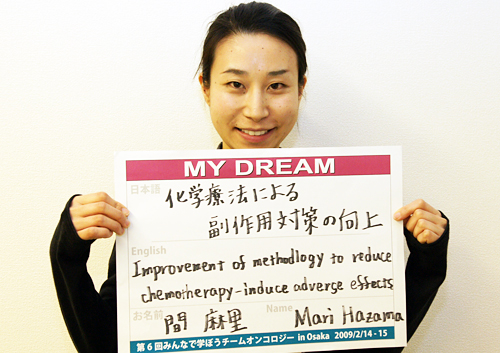 MY DREAM
日本語
化学療法による
副作用対策の向上
English
Improvement of methodlogy to reduce
chemotherapy-induce adverse effects
お名前 間 麻里 Name Mari Hazama
第6回みんなで学ぼうチームオンコロジー in Osaka 2009/2/14 - 15